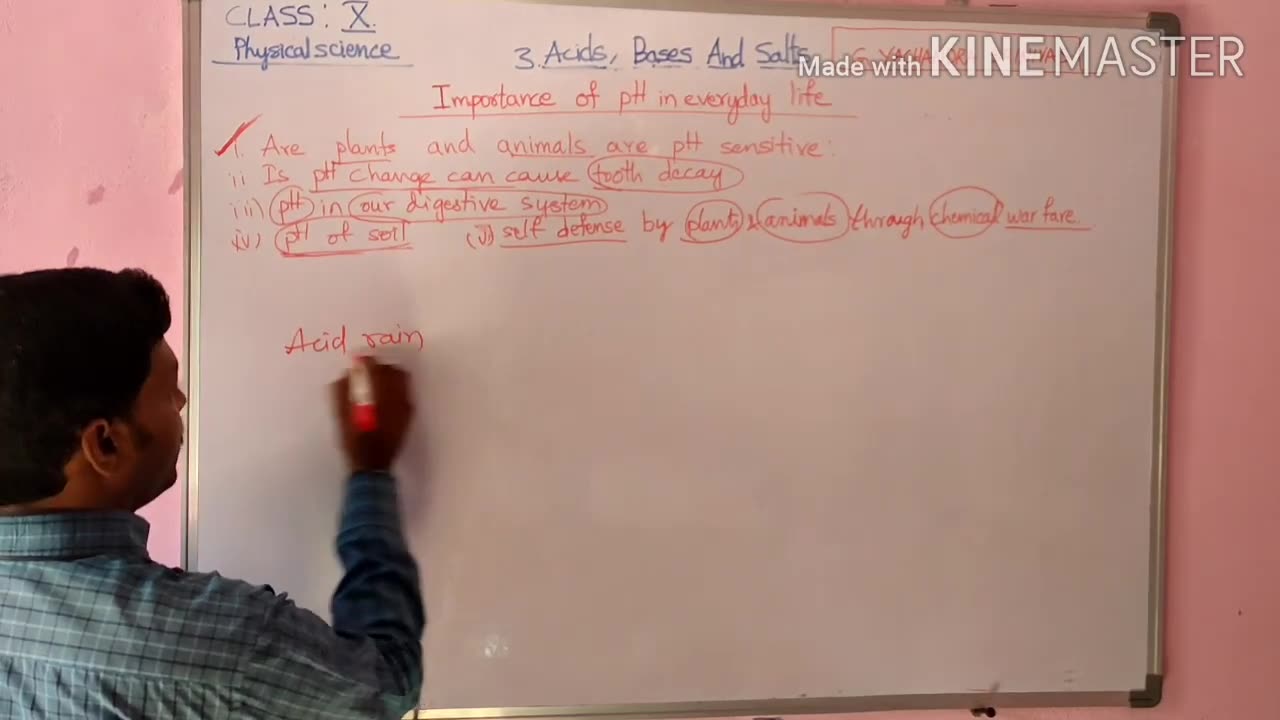 CLASS: X.
Physical science
3. Acids, Bases And Salts
Made with KINEMASTER
Importance of pH in everyday life
i. Are plants and animals are pH sensitive:
ii Is pH change can cause tooth decay
iii) pH in our digestive system
iv) pH of soil (v) self defense by plants & animals through chemical war fare.
Acid rain